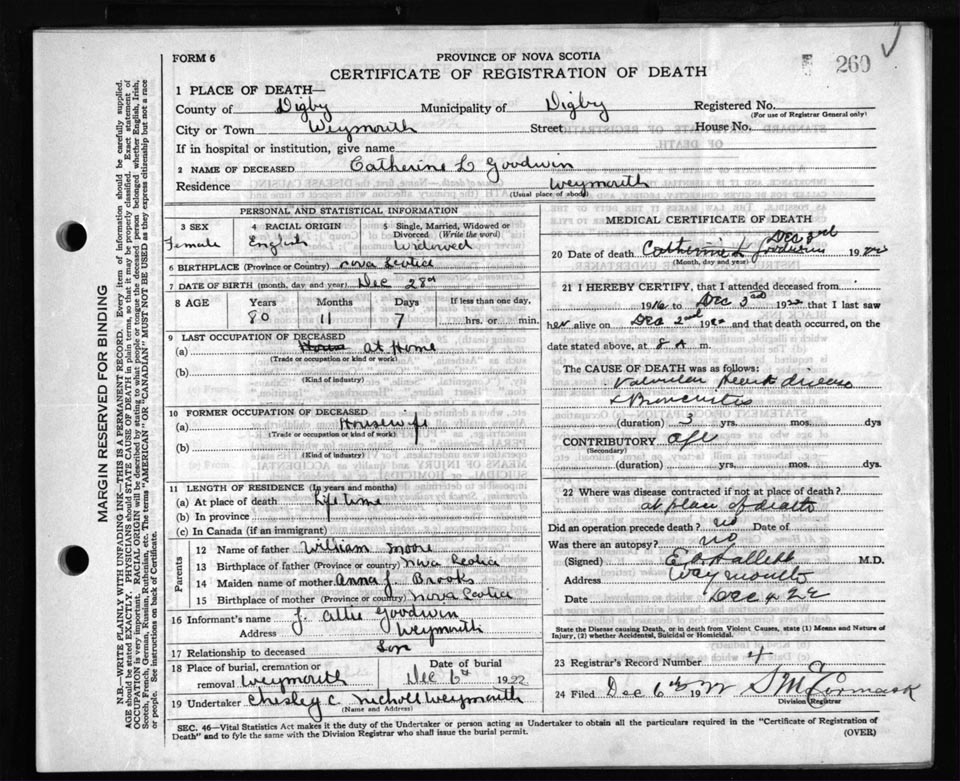 FORM 6
PROVINCE OF NOVA SCOTIA
CERTIFICATE OF REGISTRATION OF DEATH
260
1 PLACE OF DEATH—
County of Digby Municipality of Digby Registered No.
(For use of Registrar General only)
City or Town Weymouth Street House No.
If in hospital or institution, give name
2 NAME OF DECEASED Catherine L Goodwin
Residence Weymouth
(Usual place of abode)
PERSONAL AND STATISTICAL INFORMATION
3 SEX 4 RACIAL ORIGIN 5 Single, Married, Widowed or
Divorced (Write the word)
Female English Widowed
6 BIRTHPLACE (Province or Country) Nova Scotia
7 DATE OF BIRTH (month, day and year) Dec 28th
8 AGE Years Months Days If less than one day,
80 11 7 hrs. or min.
9 LAST OCCUPATION OF DECEASED
(a) at Home
(Trade or occupation or kind of work)
(b)
(Kind of industry)
10 FORMER OCCUPATION OF DECEASED
(a) Housewife
(Trade or occupation or kind of work)
(b)
(Kind of industry)
11 LENGTH OF RESIDENCE (In years and months)
(a) At place of death Life time
(b) In province
(c) In Canada (if an immigrant)
Parents
12 Name of father William Moore
13 Birthplace of father (Province or country) Nova Scotia
14 Maiden name of mother Anna J. Brooks
15 Birthplace of mother (Province or country) Nova Scotia
16 Informant's name J. Allie Goodwin
Address Weymouth
17 Relationship to deceased Son
18 Place of burial, cremation or Date of burial
removal Weymouth Dec 6th 1922
19 Undertaker Chesley C. Nicholl Weymouth
(Name and Address)
MEDICAL CERTIFICATE OF DEATH
Dec 3rd
20 Date of death Catherine L Goodwin 1922
(Month, day and year)
21 I HEREBY CERTIFY, that I attended deceased from
1916 to Dec 3rd 1922 that I last saw
her alive on Dec 2nd 1922 and that death occurred, on the
date stated above, at 8 A m.
The CAUSE OF DEATH was as follows:
Valvular heart disease
& Bronchitis
(duration) 3 yrs. mos. dys
CONTRIBUTORY age
(Secondary)
(duration) yrs. mos. dys.
22 Where was disease contracted if not at place of death?
at place of death
Did an operation precede death? no Date of
Was there an autopsy? no
(Signed) Hallett M.D.
Address Weymouth
Date Dec 4 22
State the Disease causing Death, or in death from Violent Causes, state (1) Means and Nature of
Injury, (2) whether Accidental, Suicidal or Homicidal.
23 Registrar's Record Number 4
24 Filed Dec 6th 1922 S McCormack
Division Registrar
SEC. 46—Vital Statistics Act makes it the duty of the Undertaker or person acting as Undertaker to obtain all the particulars required in the "Certificate of Registration of
Death" and to fyle the same with the Division Registrar who shall issue the burial permit. (OVER)
MARGIN RESERVED FOR BINDING
N.B.—WRITE PLAINLY WITH UNFADING INK—THIS IS A PERMANENT RECORD. Every item of information should be carefully supplied.
AGE should be stated EXACTLY. PHYSICIANS should STATE CAUSE OF DEATH in plain terms, so that it may be properly classified. Exact statement of
OCCUPATION is very important. RACIAL ORIGIN will be described by stating to what people or tongue the deceased person belonged whether English, Irish,
Scotch, French, German, Russian, Ruthenian, etc. The terms "AMERICAN" OR "CANADIAN" MUST NOT BE USED as they express citizenship but not a race
or people. See instructions on back of Certificate.